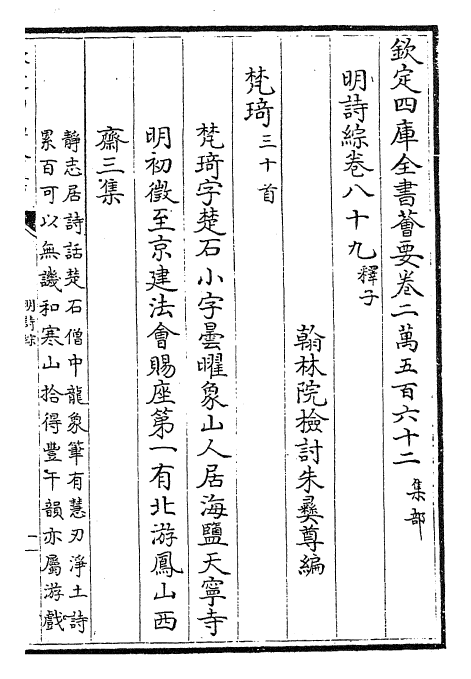 欽定四庫全書薈要卷二萬五百六十二 集部
明詩綜卷八十九 釋子
翰林院檢討朱彞尊編
梵琦 三十首
梵琦字楚石小字曇曜象山人居海鹽天寧寺
明初徵至京建法會賜座第一有北游鳳山西
齋三集
靜志居詩話楚石僧中龍象筆有慧刃淨土詩
累百可以無譏和寒山拾得豐干韻亦屬游戲
明詩綜
一